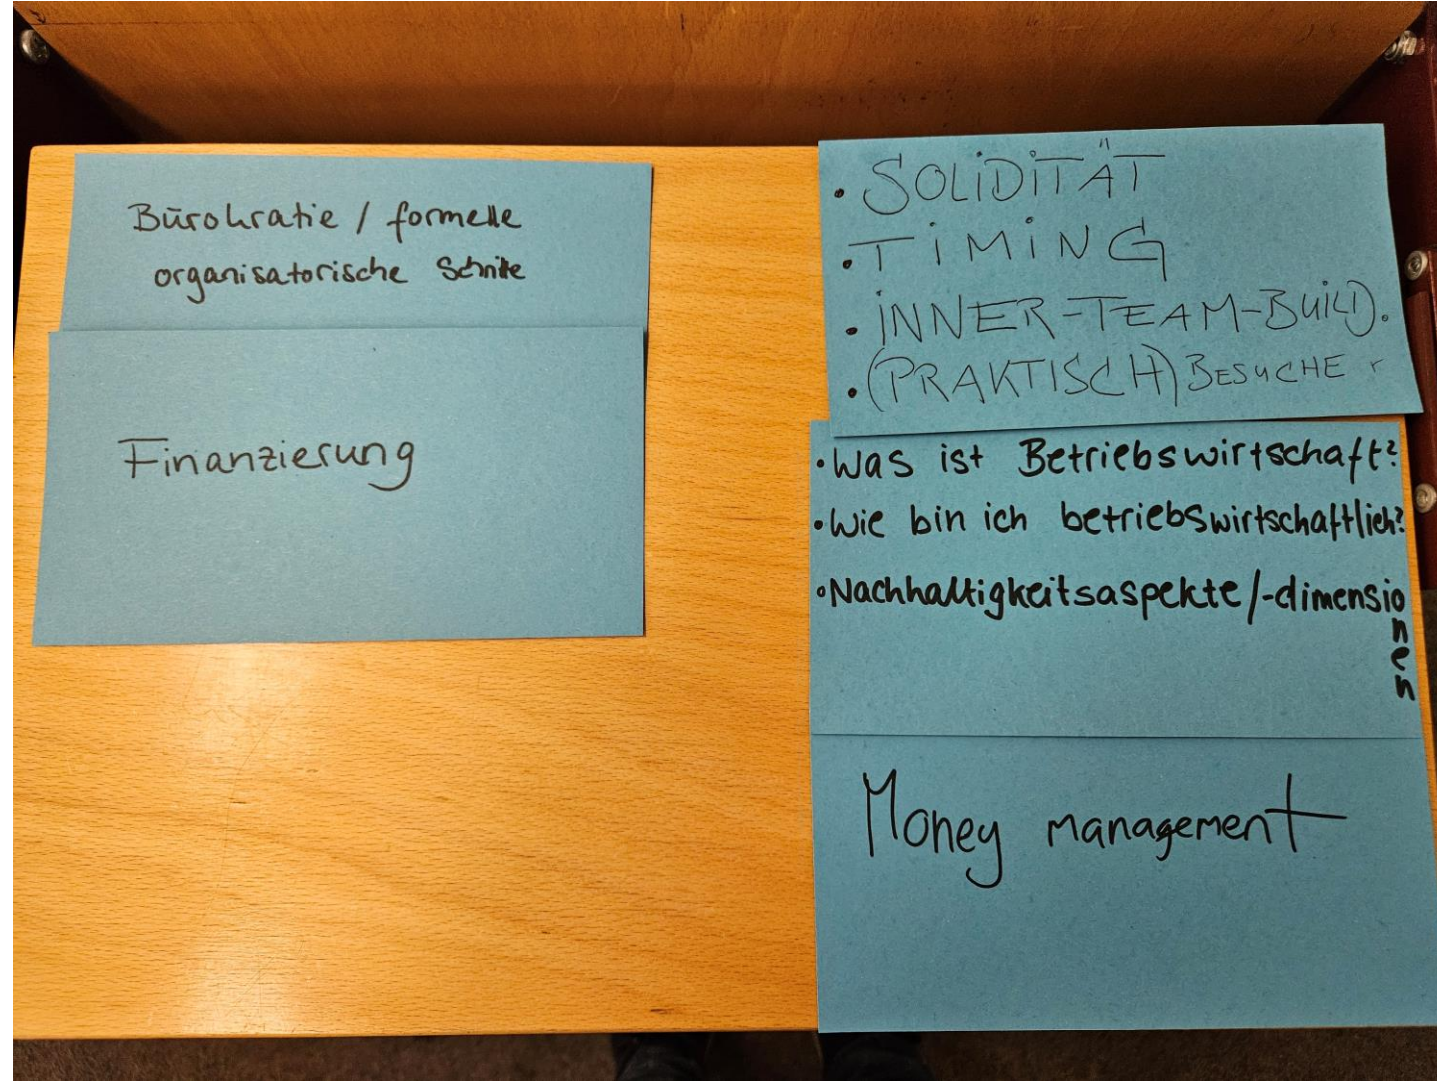 Bürokratie / formelle
organisatorische Schritte
Finanzierung
• SOLiDiTÄT
• TiMiNG
• iNNER-TEAM-BUiLD.
• (PRAKTISCH) BESUCHE
• Was ist Betriebswirtschaft?
• Wie bin ich betriebswirtschaftlich?
• Nachhaltigkeitsaspekte/-dimensionen
Money management